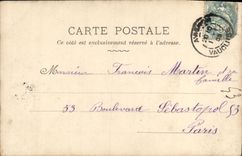 CARTE POSTALE
Ce côté est exclusivement réservé à l'adresse.
Monsieur François Martin et sa
famille
53 Boulevard Sébastopol 53
Paris
53